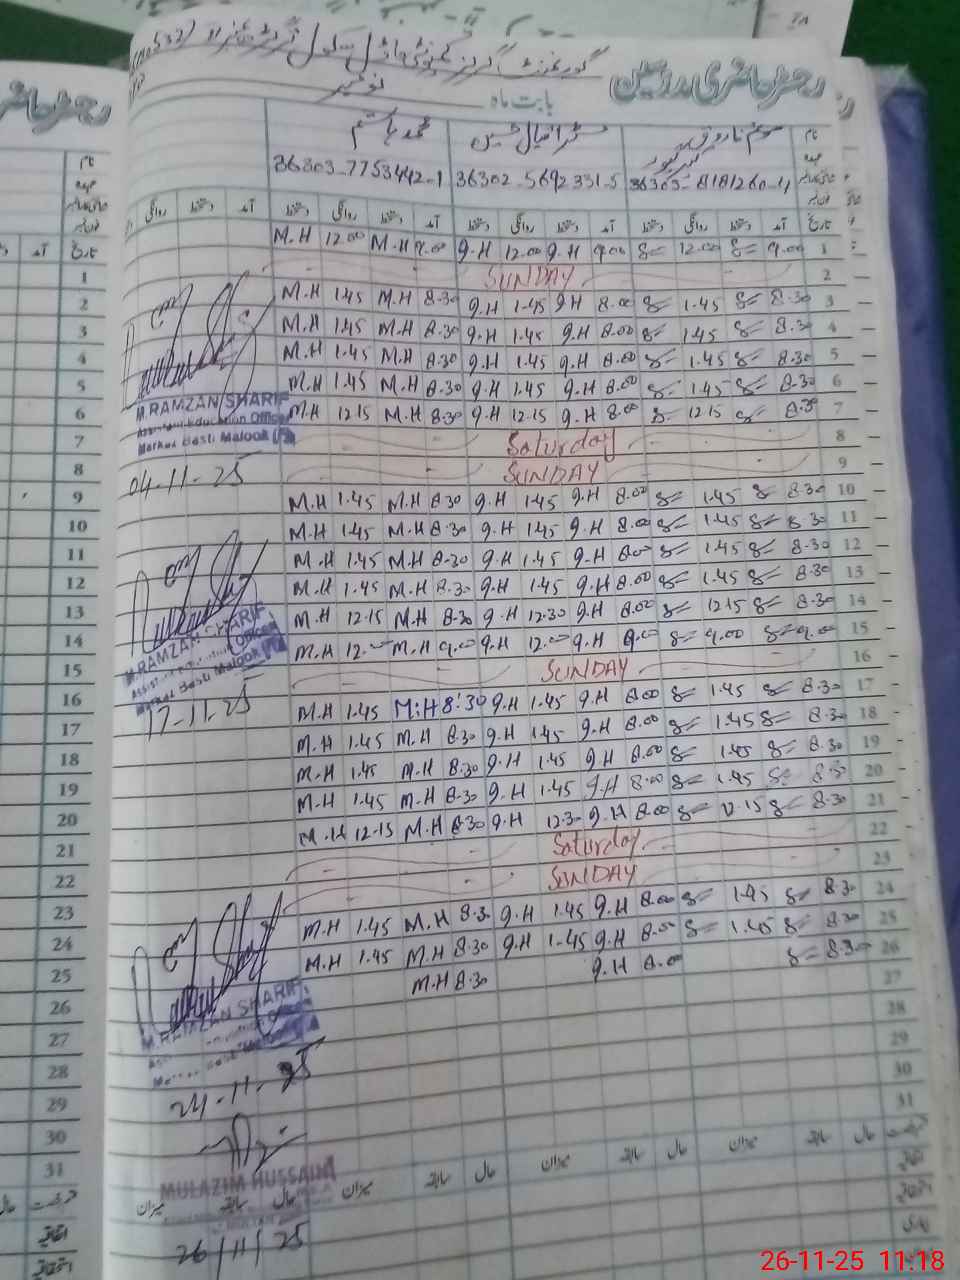 رجسٹر حاضری مدرسین
بابت ماہ نومبر
نام
محمد ہاشم
36303-7753442-1 36302-5692331-5 36303-8181260-4
آمد دستخط روانگی دستخط آمد دستخط روانگی دستخط آمد دستخط روانگی دستخط تاریخ
M.H 12.00 M.H 9.00 g.H 12.00 g.H 9.00 12.00 9.00 1
SUNDAY 2
M.H 1.45 M.H 8.30 g.H 1.45 g.H 8.00 1.45 8.30 3
M.H 1.45 M.H 8.30 g.H 1.45 g.H 8.00 1.45 8.30 4
M.H 1.45 M.H 8.30 g.H 1.45 g.H 8.00 1.45 8.30 5
M.H 1.45 M.H 8.30 g.H 1.45 g.H 8.00 1.45 8.30 6
M.H 12.15 M.H 8.30 g.H 12.15 g.H 8.00 12.15 8.30 7
Saturday 8
SUNDAY 9
M.H 1.45 M.H 8.30 g.H 1.45 g.H 8.00 1.45 8.30 10
M.H 1.45 M.H 8.30 g.H 1.45 g.H 8.00 1.45 8.30 11
M.H 1.45 M.H 8.30 g.H 1.45 g.H 8.00 1.45 8.30 12
M.H 1.45 M.H 8.30 g.H 1.45 g.H 8.00 1.45 8.30 13
M.H 12.15 M.H 8.30 g.H 12.30 g.H 8.00 12.15 8.30 14
M.H 12.00 M.H 9.00 g.H 12.00 g.H 9.00 9.00 9.00 15
SUNDAY 16
M.H 1.45 M:H 8:30 g.H 1.45 g.H 8.00 1.45 8.30 17
M.H 1.45 M.H 8.30 g.H 1.45 g.H 8.00 1.45 8.30 18
M.H 1.45 M.H 8.30 g.H 1.45 g.H 8.00 1.45 8.30 19
M.H 1.45 M.H 8.30 g.H 1.45 g.H 8.00 1.45 8.30 20
M.H 12.15 M.H 8.30 g.H 12.30 g.H 8.00 12.15 8.30 21
Saturday 22
SUNDAY 23
M.H 1.45 M.H 8.30 g.H 1.45 g.H 8.00 1.45 8.30 24
M.H 1.45 M.H 8.30 g.H 1.45 g.H 8.00 1.45 8.30 25
M.H 8.30 g.H 8.00 8.30 26
27
28
29
30
31
M.RAMZAN SHARIF
Assistant Education Officer
Markaz Basti Malook
04-11-25
M.RAMZAN SHARIF
Markaz Basti Malook
17-11-25
M.RAMZAN SHARIF
24-11-25
MULAZIM HUSSAIN
26/11/25
میزان سابقہ حال میزان سابقہ حال میزان سابقہ حال
تاریخ
1
2
3
4
5
6
7
8
9
10
11
12
13
14
15
16
17
18
19
20
21
22
23
24
25
26
27
28
29
30
31
26-11-25 11:18